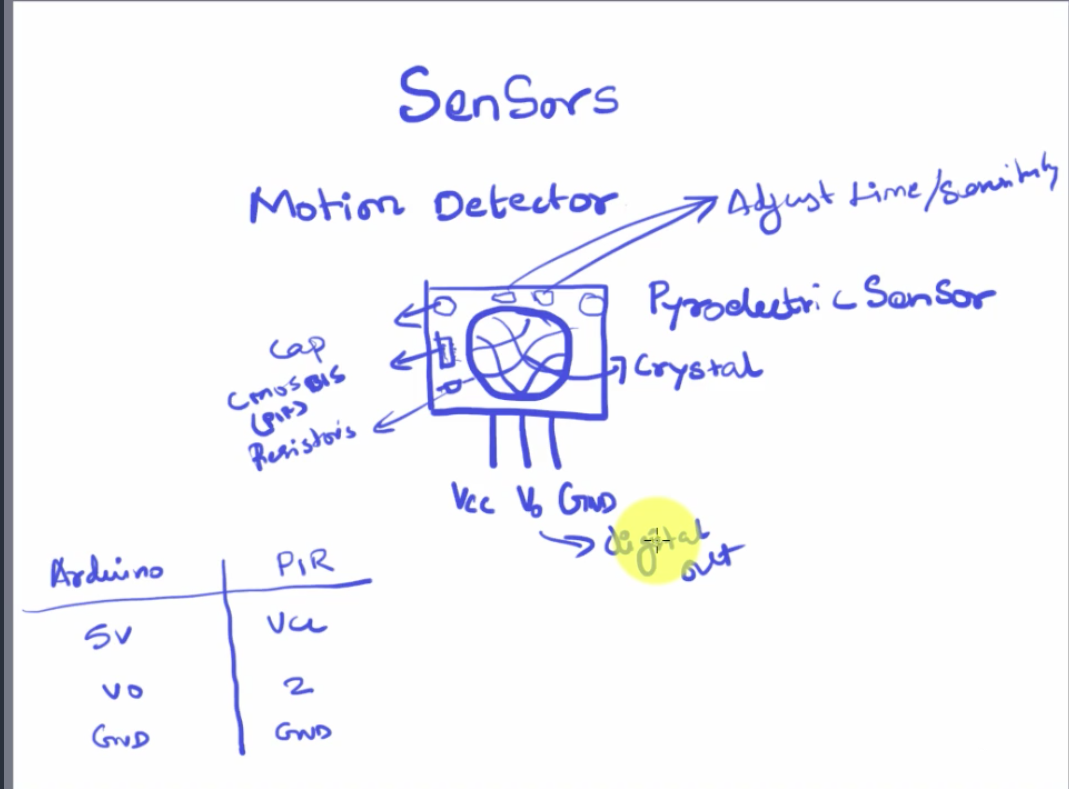 SenSors
Motion Detector
Adjust time/sensitivity
Pyroelectric Sensor
Cap
Crystal
CMOS BIS
(PIR)
Resistors
Vcc Vo GND
digital
out
Arduino PIR
5V Vcc
VO 2
GND GND